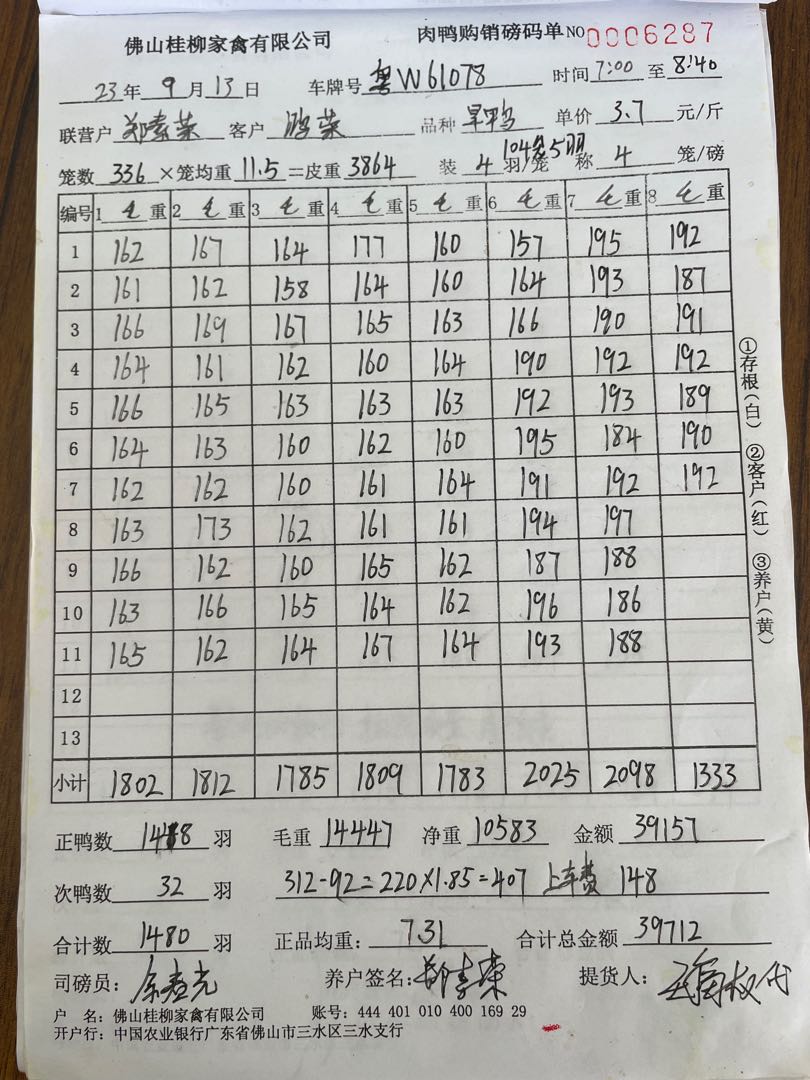 佛山桂柳家禽有限公司 肉鸭购销磅码单 NO 0006287
23年 9月 13日 车牌号 粤W61078 时间 7:00 至 8:40
联营户 郑素荣 客户 品种 旱鸭 单价 3.7 元/斤
104笼5羽
笼数 336 ×笼均重 11.5 =皮重 3864 装 4 羽/笼 称 4 笼/磅
编号 1 毛重 2 毛重 3 毛重 4 毛重 5 毛重 6 毛重 7 毛重 8 毛重
1 162 167 164 177 160 157 195 192
2 161 162 158 164 160 164 193 187
3 166 169 167 165 163 166 190 191
4 164 161 162 160 164 190 192 192
5 166 165 163 163 163 192 193 189
6 164 163 160 162 160 195 184 190
7 162 162 160 161 164 191 192 192
8 163 173 162 161 161 194 197
9 166 162 160 165 162 187 188
10 163 166 165 164 162 196 186
11 165 162 164 167 164 193 188
12
13
小计 1802 1812 1785 1809 1783 2025 2098 1333
①存根(白) ②客户(红) ③养户(黄)
正鸭数 1448 羽 毛重 14447 净重 10583 金额 39157
次鸭数 32 羽 312-92=220×1.85=407 上车费 148
合计数 1480 羽 正品均重: 7.31 合计总金额 39712
司磅员: 养户签名: 郑素荣 提货人:
户 名: 佛山桂柳家禽有限公司 账号: 444 401 010 400 169 29
开户行: 中国农业银行广东省佛山市三水区三水支行